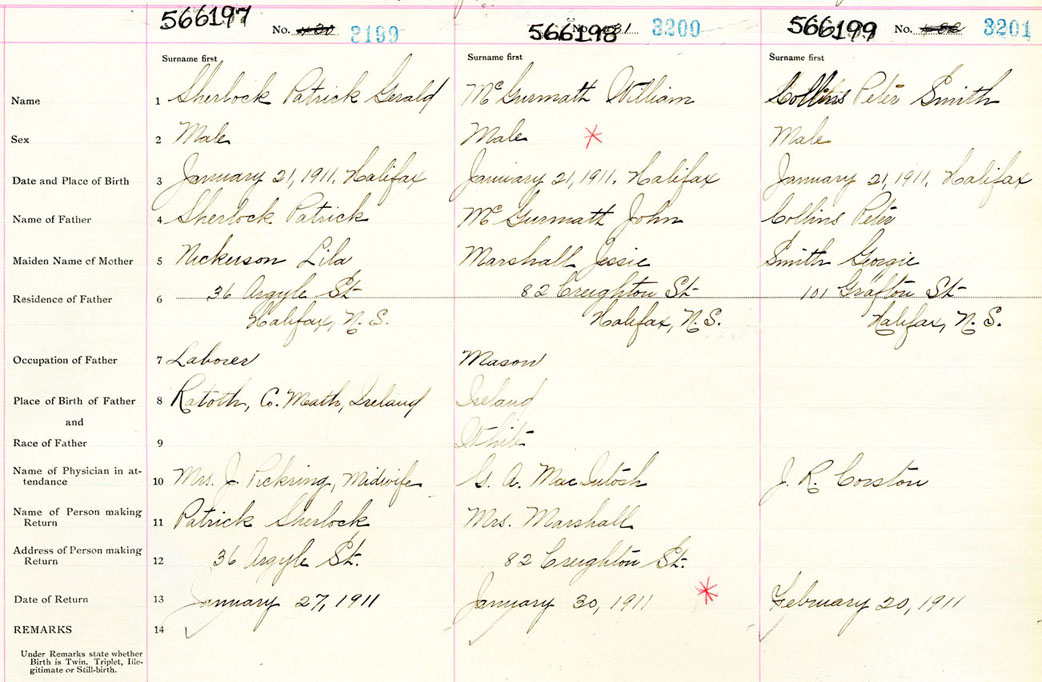 566197 No. 3199 566198 No. 81 3200 566199 No. 3201
Surname first Surname first Surname first
Name 1 Sherlock Patrick Gerald McGurmath William Collins Peter Smith
Sex 2 Male Male Male
Date and Place of Birth 3 January 21, 1911, Halifax January 21, 1911. Halifax January 21, 1911, Halifax
Name of Father 4 Sherlock Patrick McGurmath John Collins Peter
Maiden Name of Mother 5 Nickerson Lila Marshall Jessie Smith Georgie
Residence of Father 6 36 Argyle St- 82 Creighton St- 101 Grafton St-
Halifax, N.S. Halifax, N.S. Halifax, N.S.
Occupation of Father 7 Laborer Mason
Place of Birth of Father 8 Ratoth, Co. Meath, Ireland Ireland
and
Race of Father 9 White
Name of Physician in at-
tendance 10 Mrs. J. Pickring, Midwife G. A. MacIntosh J. R. Corston
Name of Person making
Return 11 Patrick Sherlock Mrs. Marshall
Address of Person making
Return 12 36 Argyle St. 82 Creighton St.
Date of Return 13 January 27, 1911 January 30, 1911 February 20, 1911
REMARKS 14
Under Remarks state whether
Birth is Twin, Triplet, Ille-
gitimate or Still-birth.